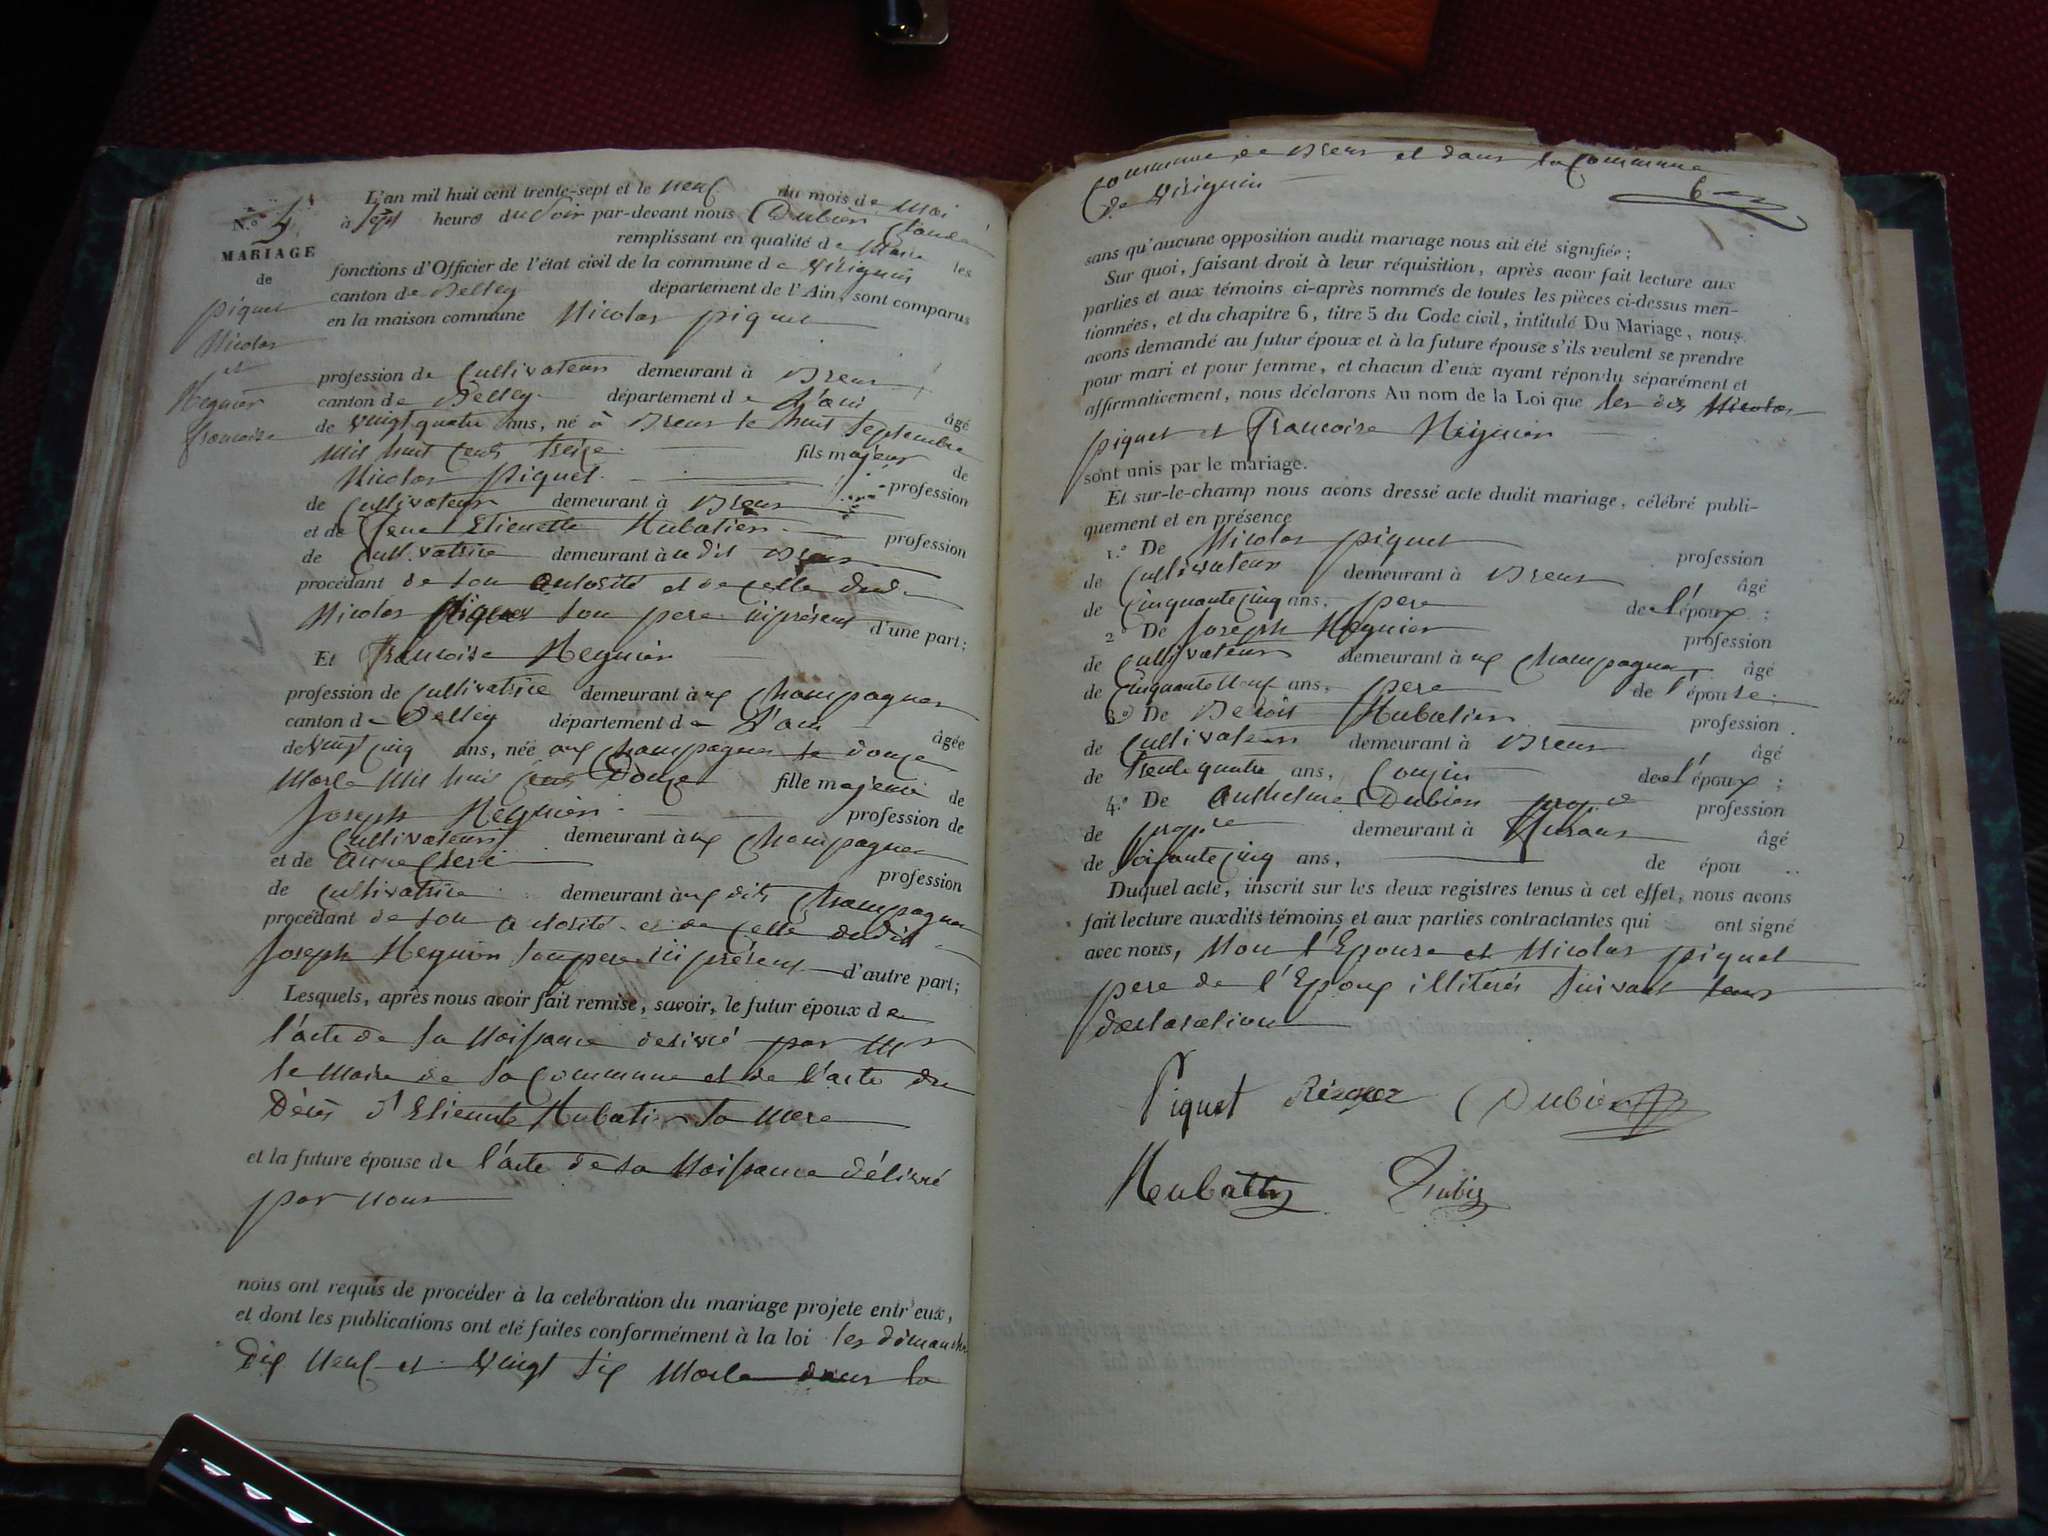 N.o 4
MARIAGE
de
piquet
Nicolas
et
Regnier
francoise
L'an mil huit cent trente-sept et le neuf du mois de Mai
à sept heures du Soir par-devant nous Dubien Claude
remplissant en qualité de Maire les
fonctions d'Officier de l'état civil de la commune de Virignin
canton de Belley département de l'Ain, sont comparus
en la maison commune Nicolas piquet
profession de Cultivateur demeurant à Brens
canton de Belley département de L'ain âgé
de vingt quatre ans, né à Brens le huit Septembre
Mil huit Cent treize fils majeur de
Nicolas Piquet profession
de Cultivateur demeurant à Brens
et de feue Etienette Hubatier profession
de Cultivatrice demeurant à udit Brens
procédant de son autorité et de celle dud.
Nicolas Piquet son pere ici présent d'une part;
Et Francoise Regnier
profession de Cultivatrice demeurant à ux Champagnes
canton de Belley département de L'ain âgée
de vingt cinq ans, née aux Champagnes le douze
Mars Mil huit Cent Douze fille majeure de
Joseph Regnier profession de
Cultivateur demeurant à ux Champagnes
et de Anne Cleri profession
de Cultivatrice demeurant à ux dits Champagnes
procédant de son autorité et de Celle dudit
Joseph Regnier son pere ici présent d'autre part;
Lesquels, après nous avoir fait remise, savoir, le futur époux de
l'acte de sa Naissance delivré par Mr
le Maire de sa Commune et de l'acte de
Décès d'Etienette Hubatier sa mere
et la future épouse de l'acte de sa Naissance délivré
par nous
nous ont requis de procéder à la celébration du mariage projeté entr'eux,
et dont les publications ont été faites conformément à la loi les dimanches
Dix Neuf et vingt Six Mars dans la
Commune de Brens et dans la Commune
de Virignin
6
sans qu'aucune opposition audit mariage nous ait été signifiée;
Sur quoi, faisant droit à leur réquisition, après avoir fait lecture aux
parties et aux témoins ci-après nommés de toutes les pièces ci-dessus men-
tionnées, et du chapitre 6, titre 5 du Code civil, intitulé Du Mariage, nous
avons demandé au futur époux et à la future épouse s'ils veulent se prendre
pour mari et pour femme, et chacun d'eux ayant répondu séparément et
affirmativement, nous déclarons Au nom de la Loi que les dits Nicolas
piquet et Francoise Regnier
sont unis par le mariage.
Et sur-le-champ nous avons dressé acte dudit mariage, célébré publi-
quement et en présence
1.o De Nicolas piquet profession
de Cultivateur demeurant à Brens âgé
de Cinquante cinq ans, pere de l'époux;
2.o De Joseph Regnier profession
de Cultivateur demeurant à ux Champagnes âgé
de Cinquante Neuf ans, pere de l'épouse;
3.o De Benoit Hubatier profession
de Cultivateur demeurant à Brens âgé
de Trente quatre ans, Cousin de l'époux;
4.o De Anthelme Dubien profession
de demeurant à âgé
de soixante Cinq ans, de épou
Duquel acte, inscrit sur les deux registres tenus à cet effet, nous avons
fait lecture auxdits témoins et aux parties contractantes qui ont signé
avec nous, Non l'Epouse et Nicolas piquet
pere de l'Epoux illiterés suivant leurs
declaration
Piquet Dubien